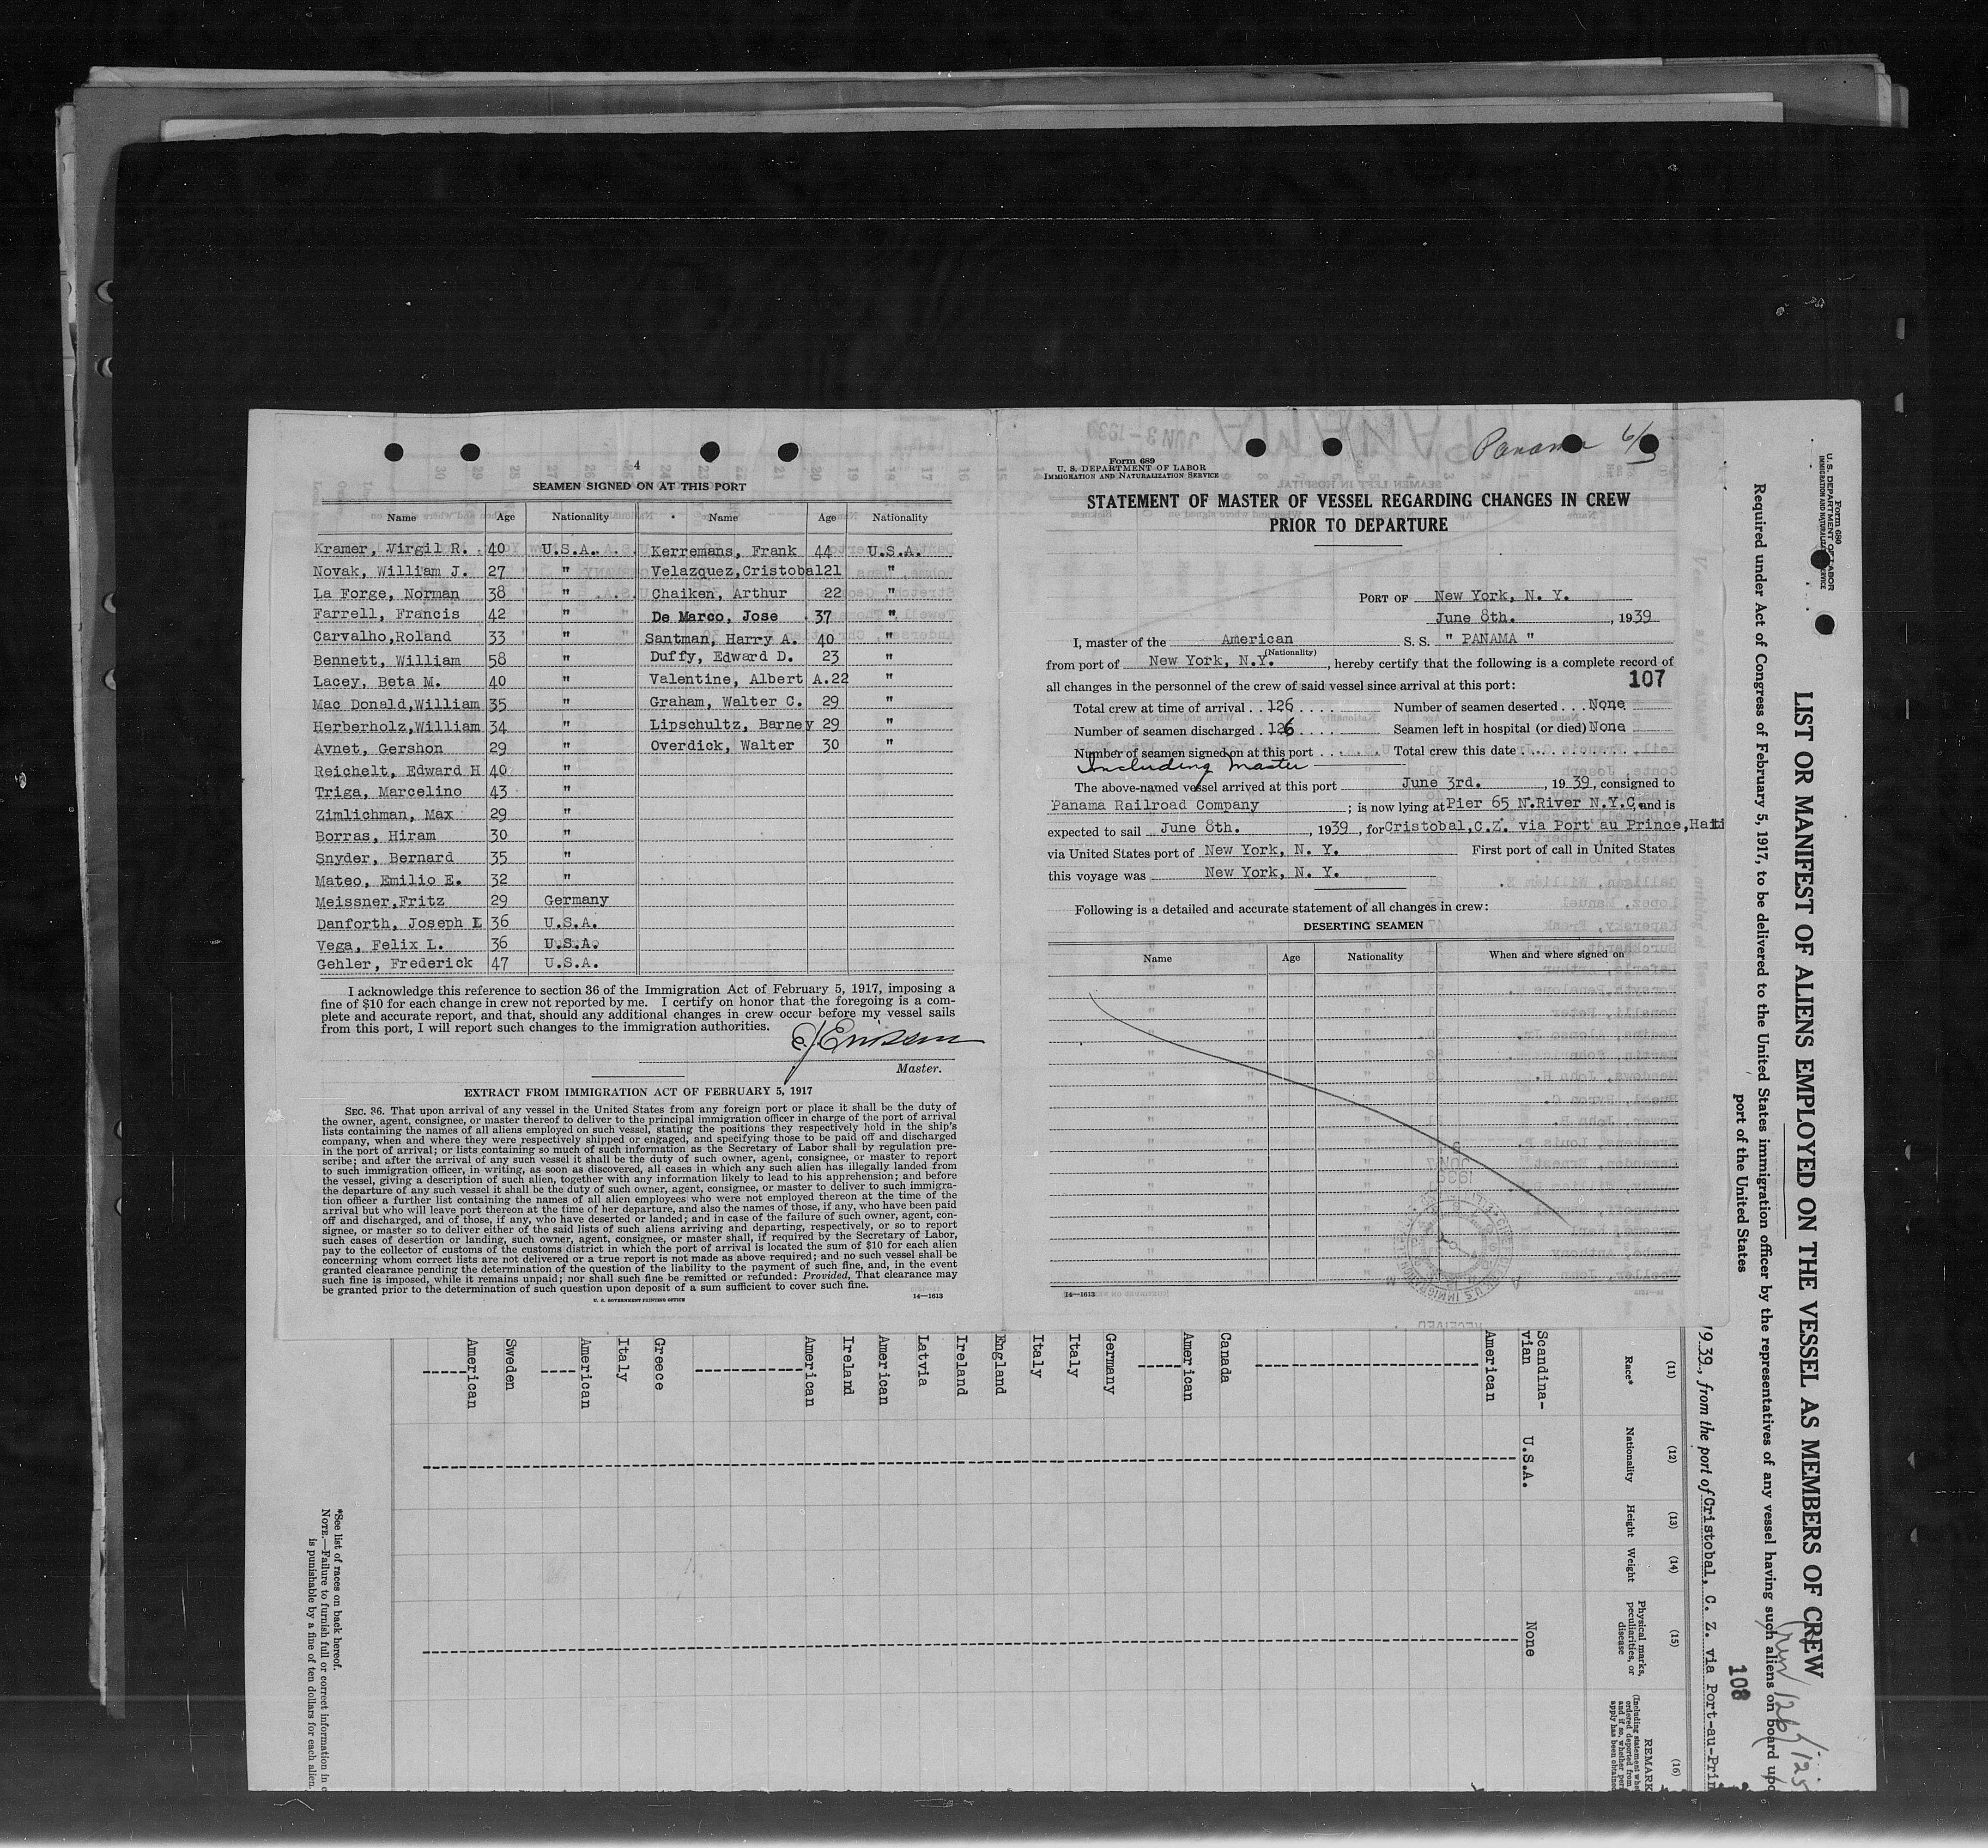 4
SEAMEN SIGNED ON AT THIS PORT
Name Age Nationality Name Age Nationality
Kramer, Virgil R. 40 U.S.A. Kerremans, Frank 44 U.S.A.
Novak, William J. 27 " Velazquez,Cristobal 21 "
La Forge, Norman 38 " Chaiken, Arthur 22 "
Farrell, Francis 42 " De Marco, Jose 37 "
Carvalho,Roland 33 " Santman, Harry A. 40 "
Bennett, William 58 " Duffy, Edward D. 23 "
Lacey, Beta M. 40 " Valentine, Albert A.22 "
Mac Donald,William 35 " Graham, Walter C. 29 "
Herberholz,William 34 " Lipschultz, Barney 29 "
Avnet, Gershon 29 " Overdick, Walter 30 "
Reichelt, Edward H 40 "
Triga, Marcelino 43 "
Zimlichman, Max 29 "
Borras, Hiram 30 "
Snyder, Bernard 35 "
Mateo, Emilio E. 32 "
Meissner,Fritz 29 Germany
Danforth, Joseph L 36 U.S.A.
Vega, Felix L. 36 U.S.A.
Gehler, Frederick 47 U.S.A.
I acknowledge this reference to section 36 of the Immigration Act of February 5, 1917, imposing a
fine of $10 for each change in crew not reported by me. I certify on honor that the foregoing is a com-
plete and accurate report, and that, should any additional changes in crew occur before my vessel sails
from this port, I will report such changes to the immigration authorities.
Master.
EXTRACT FROM IMMIGRATION ACT OF FEBRUARY 5, 1917
SEC. 36. That upon arrival of any vessel in the United States from any foreign port or place it shall be the duty of
the owner, agent, consignee, or master thereof to deliver to the principal immigration officer in charge of the port of arrival
lists containing the names of all aliens employed on such vessel, stating the positions they respectively hold in the ship's
company, when and where they were respectively shipped or engaged, and specifying those to be paid off and discharged
in the port of arrival; or lists containing so much of such information as the Secretary of Labor shall by regulation pre-
scribe; and after the arrival of any such vessel it shall be the duty of such owner, agent, consignee, or master to report
to such immigration officer, in writing, as soon as discovered, all cases in which any such alien has illegally landed from
the vessel, giving a description of such alien, together with any information likely to lead to his apprehension; and before
the departure of any such vessel it shall be the duty of such owner, agent, consignee, or master to deliver to such immigra-
tion officer a further list containing the names of all alien employees who were not employed thereon at the time of the
arrival but who will leave port thereon at the time of her departure, and also the names of those, if any, who have been paid
off and discharged, and of those, if any, who have deserted or landed; and in case of the failure of such owner, agent, con-
signee, or master so to deliver either of the said lists of such aliens arriving and departing, respectively, or so to report
such cases of desertion or landing, such owner, agent, consignee, or master shall, if required by the Secretary of Labor,
pay to the collector of customs of the customs district in which the port of arrival is located the sum of $10 for each alien
concerning whom correct lists are not delivered or a true report is not made as above required; and no such vessel shall be
granted clearance pending the determination of the question of the liability to the payment of such fine, and, in the event
such fine is imposed, while it remains unpaid; nor shall such fine be remitted or refunded: Provided, That clearance may
be granted prior to the determination of such question upon deposit of a sum sufficient to cover such fine.
U. S. GOVERNMENT PRINTING OFFICE 14—1613
Panama 6/3
Form 689
U. S. DEPARTMENT OF LABOR
IMMIGRATION AND NATURALIZATION SERVICE
STATEMENT OF MASTER OF VESSEL REGARDING CHANGES IN CREW
PRIOR TO DEPARTURE
PORT OF New York, N. Y.
June 8th. , 1939
I, master of the American S. S. " PANAMA "
(Nationality)
from port of New York, N.Y. , hereby certify that the following is a complete record of
all changes in the personnel of the crew of said vessel since arrival at this port:
107
Total crew at time of arrival 126 Number of seamen deserted None
Number of seamen discharged 126 Seamen left in hospital (or died) None
Number of seamen signed on at this port Total crew this date
Including Master
The above-named vessel arrived at this port June 3rd. , 1939, consigned to
Panama Railroad Company ; is now lying at Pier 65 N.River N.Y.C, and is
expected to sail June 8th. , 1939, for Cristobal,C.Z. via Port au Prince,Haiti
via United States port of New York, N. Y. First port of call in United States
this voyage was New York, N. Y.
Following is a detailed and accurate statement of all changes in crew:
DESERTING SEAMEN
Name Age Nationality When and where signed on
14—1613
Form 680
U. S. DEPARTMENT OF LABOR
LIST OR MANIFEST OF ALIENS EMPLOYED ON THE VESSEL AS MEMBERS OF CREW
Required under Act of Congress of February 5, 1917, to be delivered to the United States immigration officer by the representatives of any vessel having such aliens on board upo
port of the United States
108
1939, from the port of Cristobal, C. Z. via Port-au-Prin
(11) (12) (13) (14) (15) (16)
Race* Nationality Height Weight Physical marks, peculiarities, or disease REMARK
Scandina-
vian U.S.A. None
American
Canada
American
Germany
Italy
Italy
England
Ireland
Latvia
American
Ireland
American
Greece
Italy
American
Sweden
American
*See list of races on back hereof.
NOTE.—Failure to furnish full or correct information in
is punishable by a fine of ten dollars for each alien.